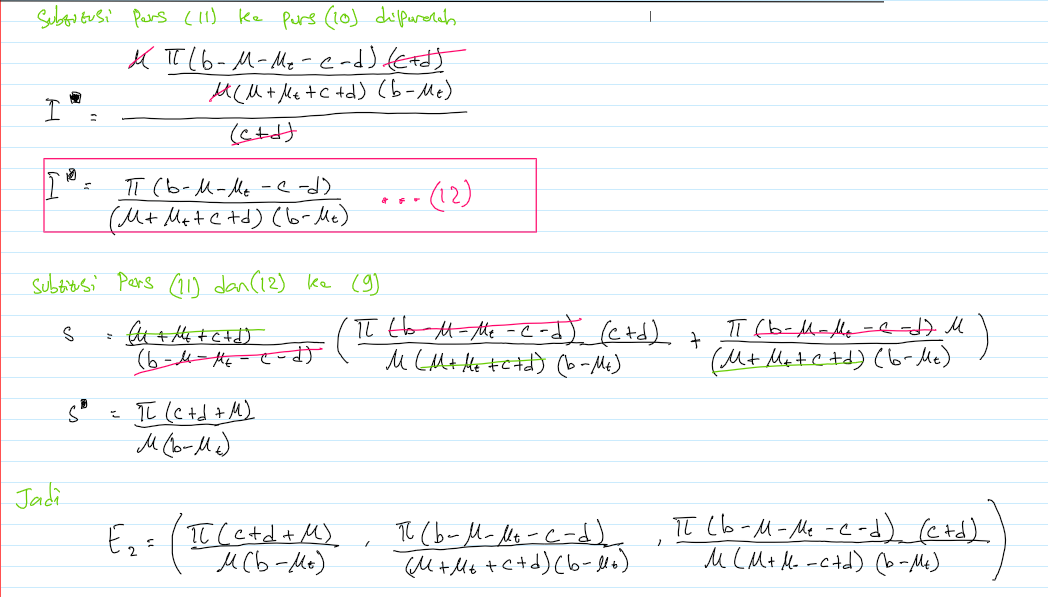 Substitusi Pers (11) ke pers (10) diperoleh
I* = (μ π(b-μ-μt-c-d)(c+d) / μ(μ+μt+c+d)(b-μt)) / (c+d)
I* = π(b-μ-μt-c-d) / (μ+μt+c+d)(b-μt) ...(12)
Subtitusi Pers (11) dan (12) ke (9)
S = (μ+μt+c+d) / (b-μ-μt-c-d) ( π(b-μ-μt-c-d)(c+d) / μ(μ+μt+c+d)(b-μt) + π(b-μ-μt-c-d)μ / (μ+μt+c+d)(b-μt) )
S* = π(c+d+μ) / μ(b-μt)
Jadi
E2 = ( π(c+d+μ) / μ(b-μt) , π(b-μ-μt-c-d) / (μ+μt+c+d)(b-μt) , π(b-μ-μt-c-d)(c+d) / μ(μ+μ-c+d)(b-μt) )